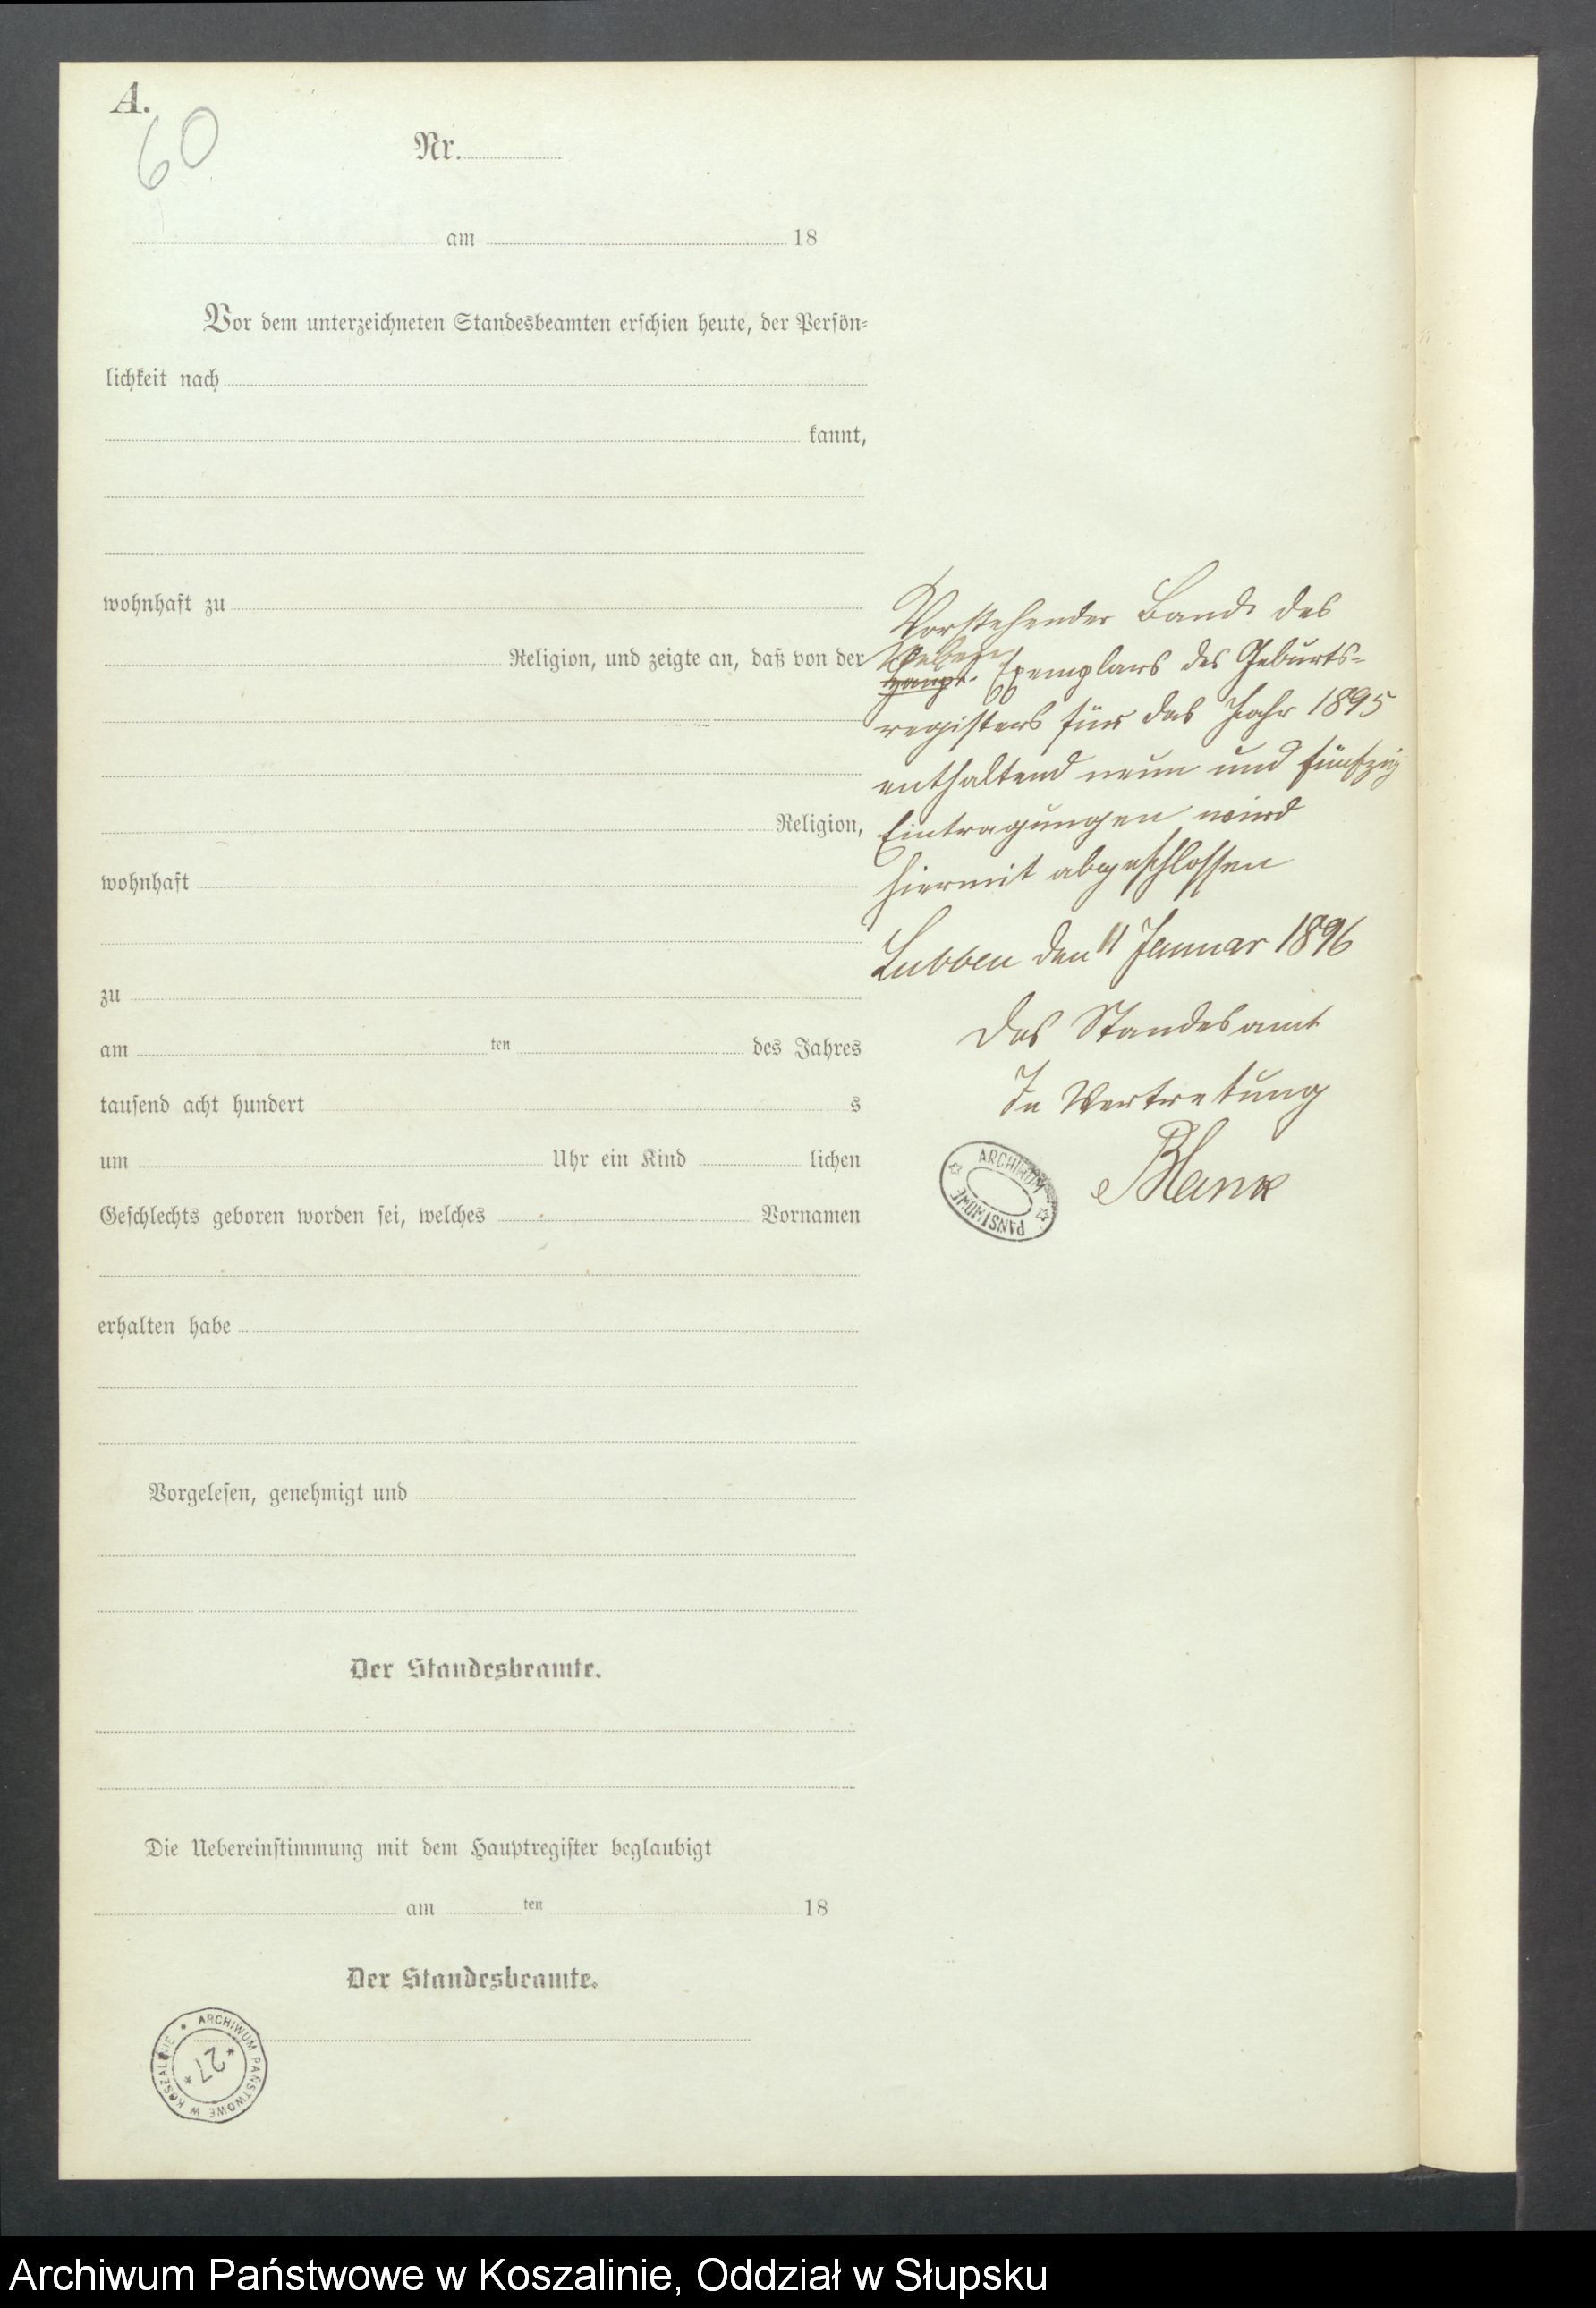 A.
60
Nr.
am 18
Vor dem unterzeichneten Standesbeamten erschien heute, der Persön-
lichkeit nach
kannt,
wohnhaft zu
Religion, und zeigte an, daß von der
Religion,
wohnhaft
zu
am ten des Jahres
tausend acht hundert s
um Uhr ein Kind lichen
Geschlechts geboren worden sei, welches Vornamen
erhalten habe
Vorgelesen, genehmigt und
Der Standesbeamte.
Die Uebereinstimmung mit dem Hauptregister beglaubigt
am ten 18
Der Standesbeamte.
Vorstehender Band des
Neben
Haupt- Exemplars des Geburts-
registers für das Jahr 1895
enthaltend neun und fünfzig
Eintragungen wird
hiermit abgeschlossen
Lubben den 11 Januar 1896
Das Standesamt
In Vertretung
Blank
ARCHIWUM PAŃSTWOWE
ARCHIWUM PAŃSTWOWE W KOSZALINIE
27
Archiwum Państwowe w Koszalinie, Oddział w Słupsku